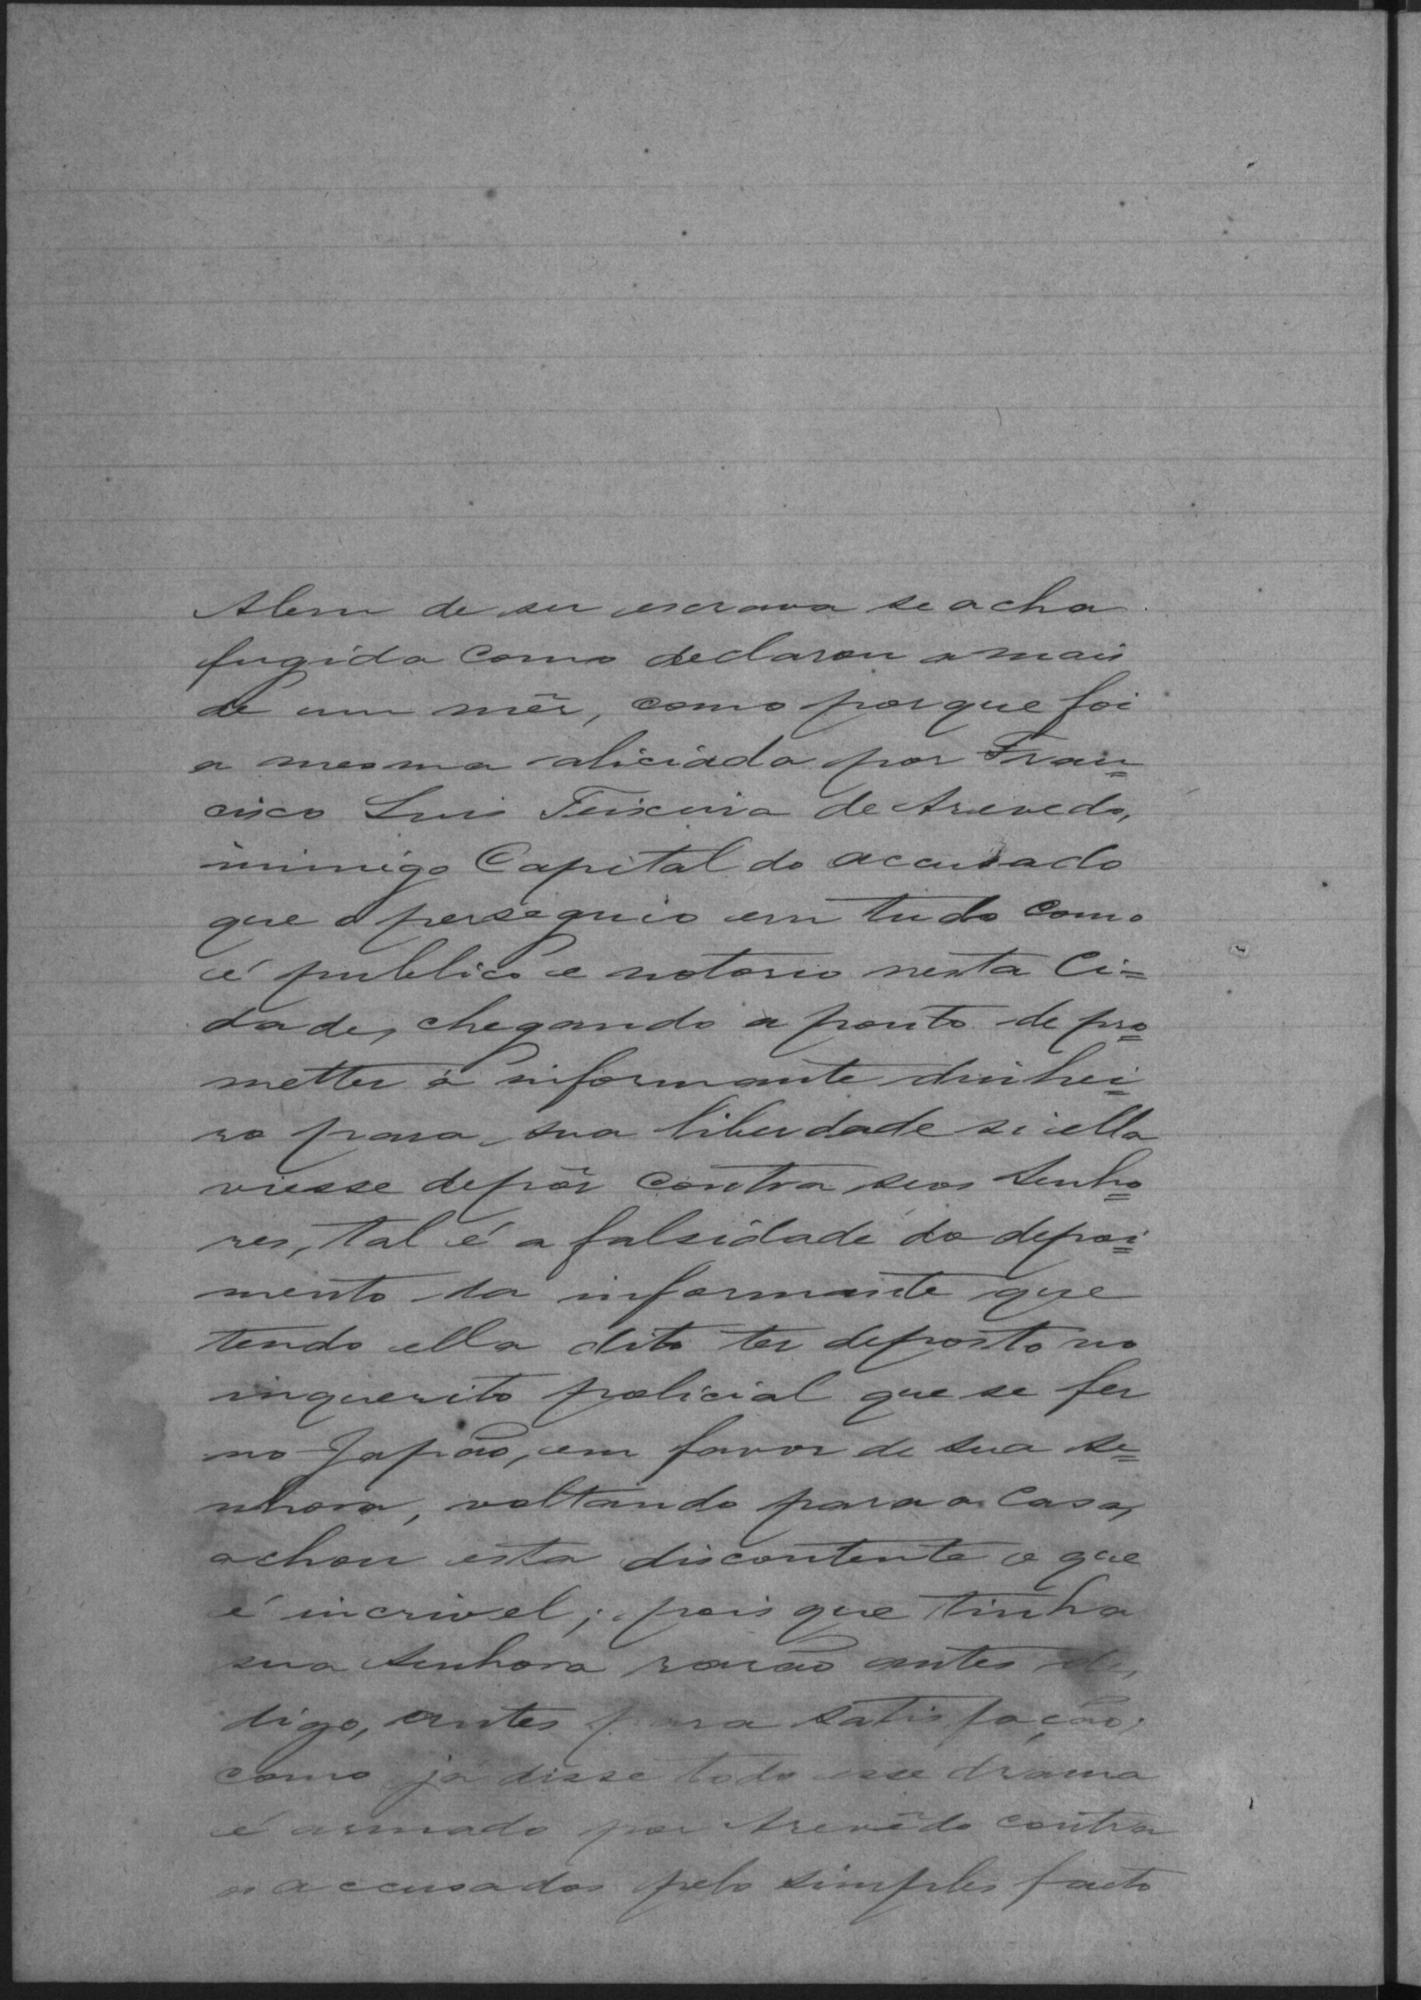 Alem de ser escrava se acha
fugida como declarou a mais
de um mês, como porque foi
a mesma aliciada por Fran=
cisco Luis Teixeira de Azevedo,
inimigo Capital do accusado
que o perseguio em tudo como
é publico e notorio nesta Ci=
dade, chegando a ponto de pro=
metter á informante dinhei=
ro para sua liberdade si ella
viesse depôr contra seos Senho=
res, tal é a falsidade do depoi=
mento da informante que
tendo ella dito ter deposto no
inquerito policial que se fez
no Japão, em favor de sua se=
nhora, voltando para a Casa,
achou esta discontente o que
é incrivel; pois que tinha
sua Senhora rasão antes de,
digo, antes para satisfação;
como já disse todo esse drama
é armado por Azevêdo contra
os accusados pelo simples facto